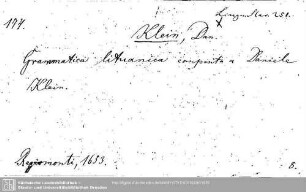 197.
Linguar. 251.
Klein, Dan.
Grammatica lituanica composita a Daniele
Klein.
Regiomonti, 1653.
8.
Sächsische Landesbibliothek -
Staats- und Universitätsbibliothek Dresden